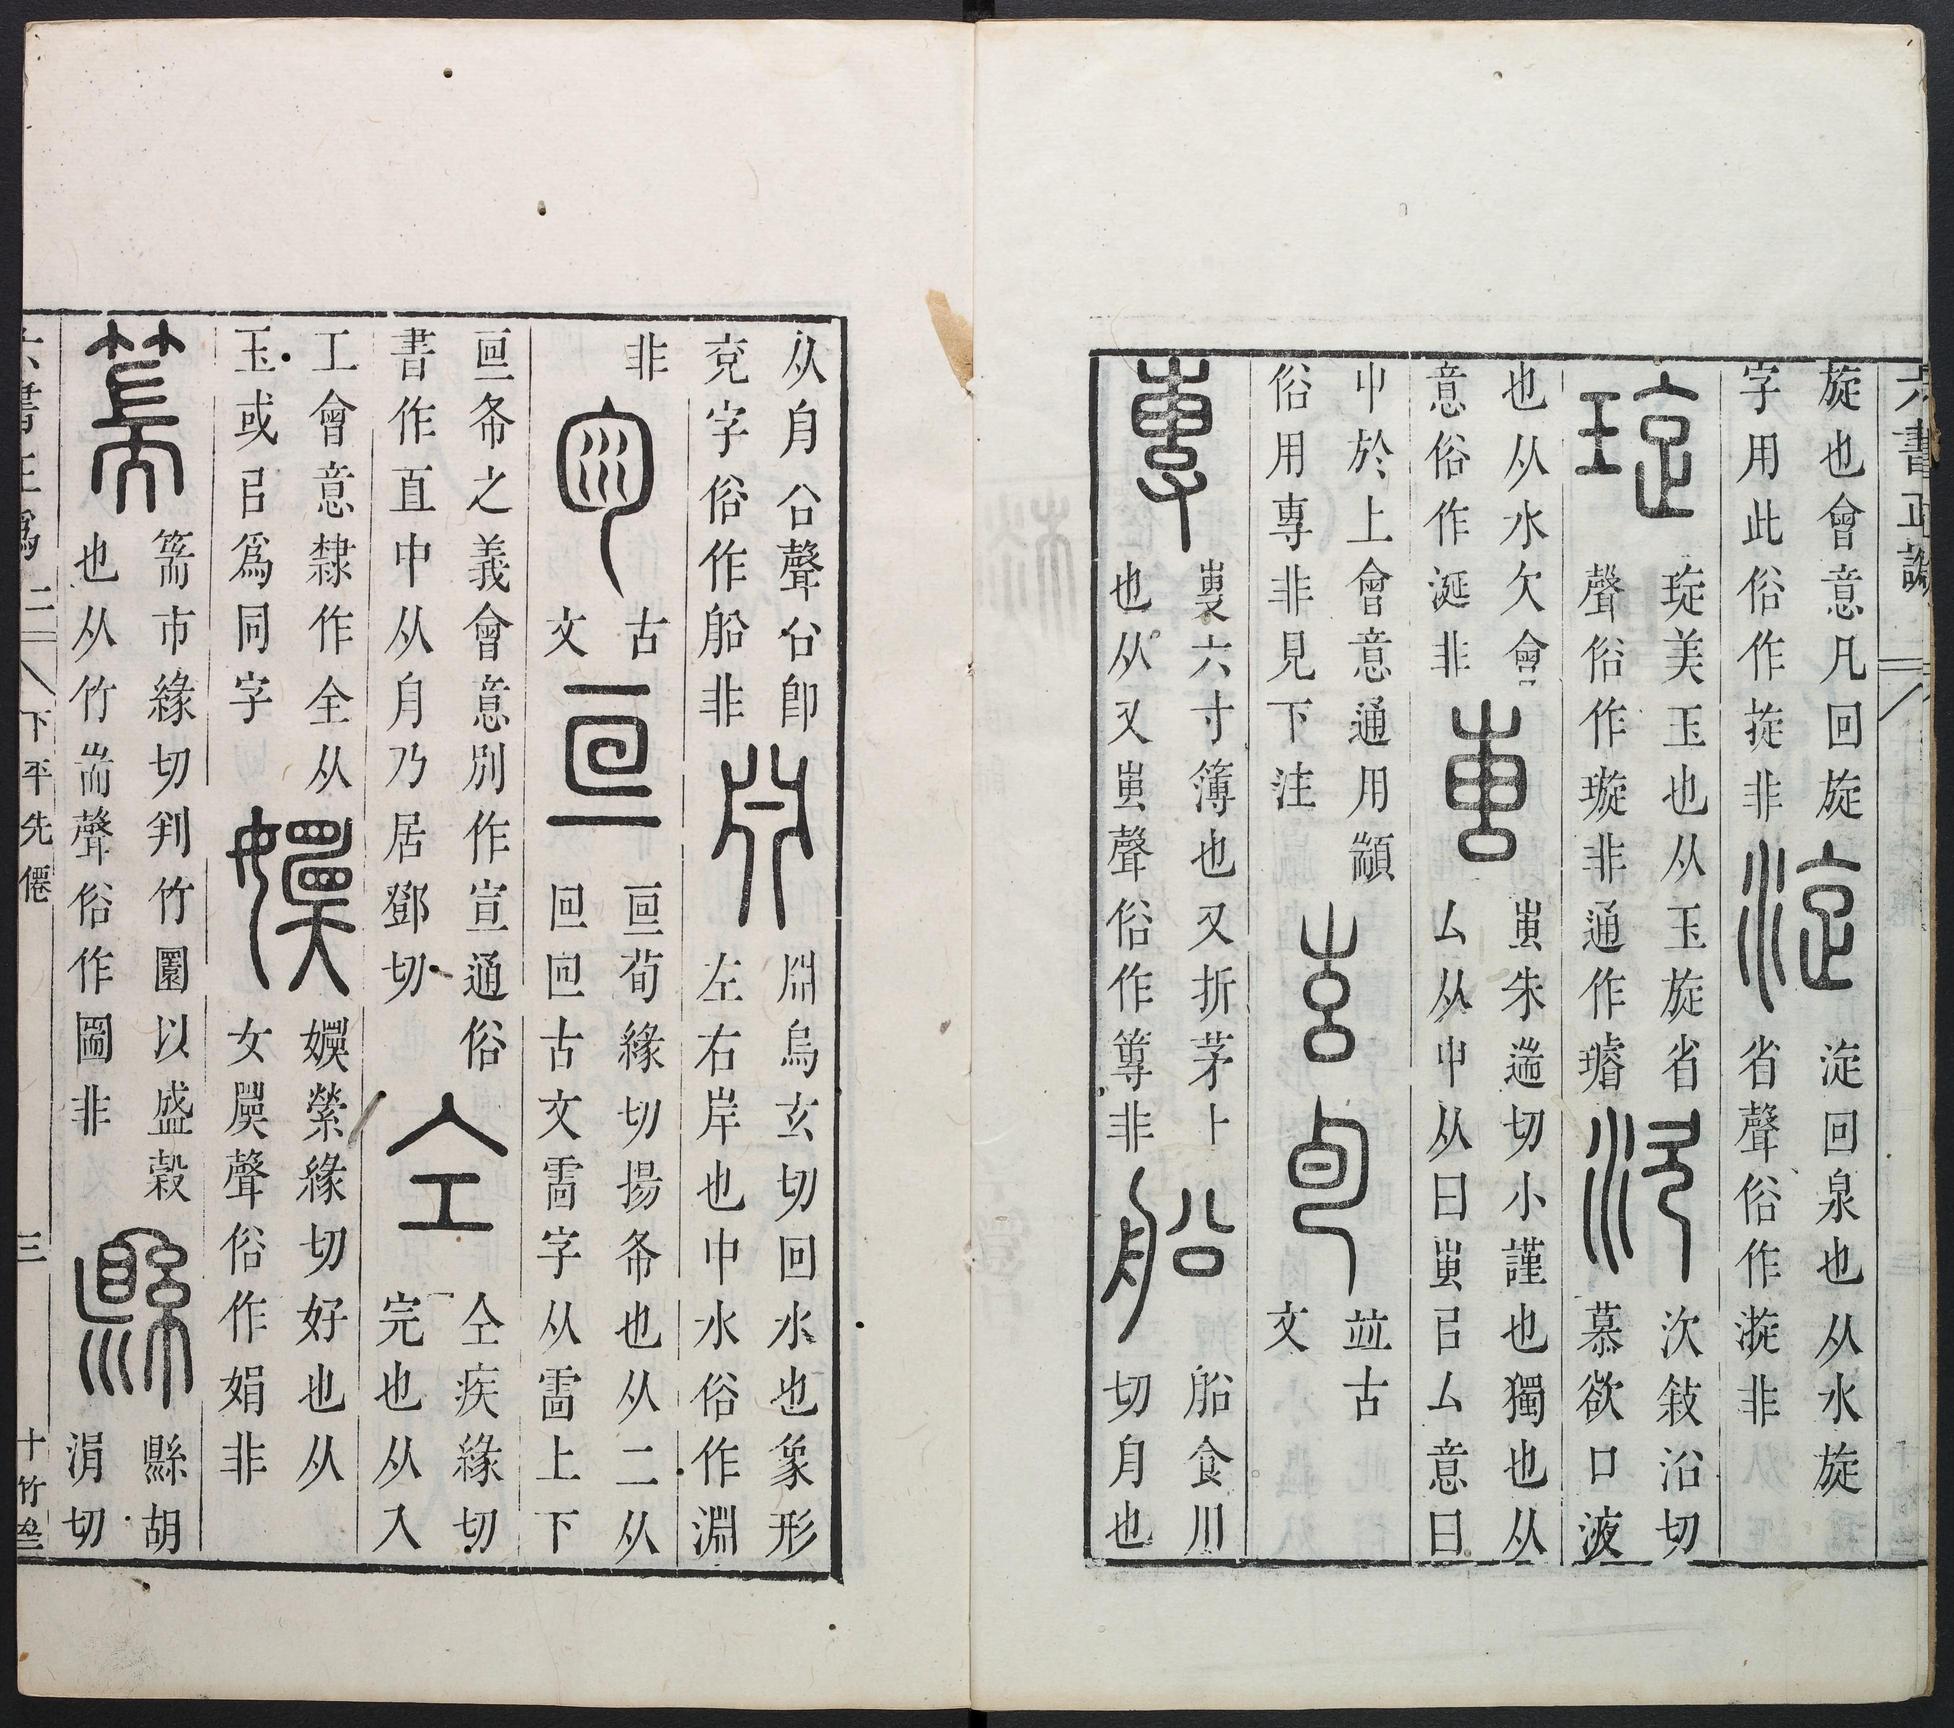 六書正譌
旋也會意凡回旋
字用此俗作㨀非
淀
淀回泉也从水旋
省聲俗作漩非
琁
琁美玉也从玉旋省
聲俗作璇非通作璿
㳄
㳄敍沿切
慕欲口液
也从水欠會
意俗作涎非
叀
叀朱遄切小謹也獨也从
厶从屮从曰叀㠯厶意曰
屮於上會意通用顓
俗用專非見下注
竝古
文
叀六寸簿也又折茅卜
也从又叀聲俗作篿非
船
船食川
切舟也
从舟㕣聲㕣即
兗字俗作舩非
淵烏玄切回水也象形
左右岸也中水俗作淵
非
古
文
亘
亘荀緣切揚布也从二从
回回古文雷字从雷上下
亘布之義會意別作宣通俗
書作直中从舟乃居鄧切
仝
仝疾緣切
完也从入
工會意隸作全从
玉或㠯爲同字
嬽
嬽縈緣切好也从
女䁠聲俗作娟非
篅
篅市緣切判竹圜以盛穀
也从竹耑聲俗作圌非
縣
縣胡
涓切
六書正譌 二 下平先僊 三 十竹齋